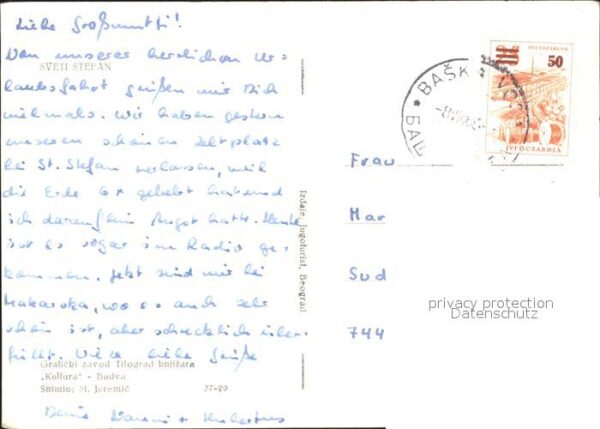 Liebe Großmutti!
Von unserer herrlichen Ur=
SVETI STEFAN
laubsfahrt grüßen wir Dich
vielmals. Wir haben gestern
unseren schönen Zeltplatz
bei St. Stefan verlassen, weil
die Erde 6x gebebt hat und
ich daraufhin Angst hatte. Heute
ist es sogar im Radio ge-
kommen. Jetzt sind wir bei
Makarska, wo es auch sehr
schön ist, aber schrecklich über-
füllt. Viele liebe Grüße
Grafički zavod Titograd knjižara
„Kultura" - Budva
Snimio: M. Jeremić 37-29
Deine + Hubertus
Izdaje Jugoturist, Beograd
JUGOSLAVIJA
50
ЈУГОСЛАВИЈА
BAŠK VO
БАШ
Frau
Mar
Sud
744
privacy protection
Datenschutz